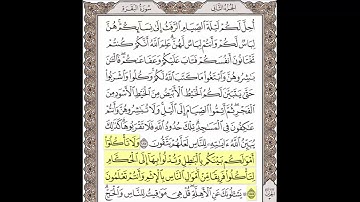 الجزء الثاني
سورة البقرة
أُحِلَّ لَكُمْ لَيْلَةَ الصِّيَامِ الرَّفَثُ إِلَىٰ نِسَائِكُمْ هُنَّ
لِبَاسٌ لَّكُمْ وَأَنتُمْ لِبَاسٌ لَّهُنَّ عَلِمَ اللَّهُ أَنَّكُمْ كُنتُمْ
تَخْتَانُونَ أَنفُسَكُمْ فَتَابَ عَلَيْكُمْ وَعَفَا عَنكُمْ فَالْآنَ
بَاشِرُوهُنَّ وَابْتَغُوا مَا كَتَبَ اللَّهُ لَكُمْ وَكُلُوا وَاشْرَبُوا
حَتَّىٰ يَتَبَيَّنَ لَكُمُ الْخَيْطُ الْأَبْيَضُ مِنَ الْخَيْطِ الْأَسْوَدِ مِنَ
الْفَجْرِ ثُمَّ أَتِمُّوا الصِّيَامَ إِلَى اللَّيْلِ وَلَا تُبَاشِرُوهُنَّ وَأَنتُمْ
عَاكِفُونَ فِي الْمَسَاجِدِ تِلْكَ حُدُودُ اللَّهِ فَلَا تَقْرَبُوهَا كَذَٰلِكَ
يُبَيِّنُ اللَّهُ آيَاتِهِ لِلنَّاسِ لَعَلَّهُمْ يَتَّقُونَ ١٨٧ وَلَا تَأْكُلُوا
أَمْوَالَكُم بَيْنَكُم بِالْبَاطِلِ وَتُدْلُوا بِهَا إِلَى الْحُكَّامِ
لِتَأْكُلُوا فَرِيقًا مِّنْ أَمْوَالِ النَّاسِ بِالْإِثْمِ وَأَنتُمْ تَعْلَمُونَ
١٨٨ يَسْأَلُونَكَ عَنِ الْأَهِلَّةِ قُلْ هِيَ مَوَاقِيتُ لِلنَّاسِ وَالْحَجِّ